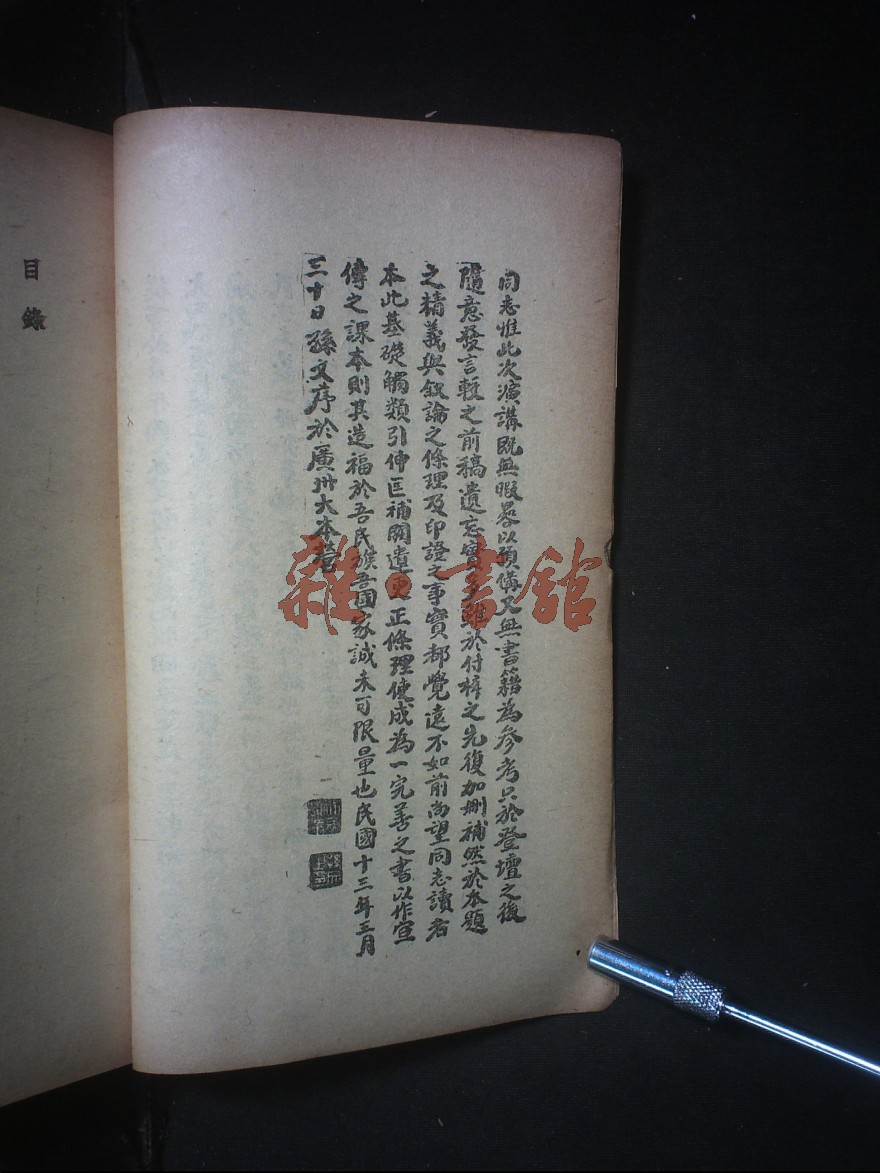 同志惟此次演講既無暇晷以預備又無書籍為參考只於登壇之後
隨意發言較之前稿遺忘實多雖於付梓之先復加刪補然於本題
之精義與敘論之條理及印證之事實都覺遠不如前尚望同志讀者
本此基礎觸類引伸匡補闕遺更正條理使成為一完善之書以作宣
傳之課本則其造福於吾民族吾國家誠未可限量也民國十三年三月
三十日孫文序於廣州大本營
目錄
雜·書館